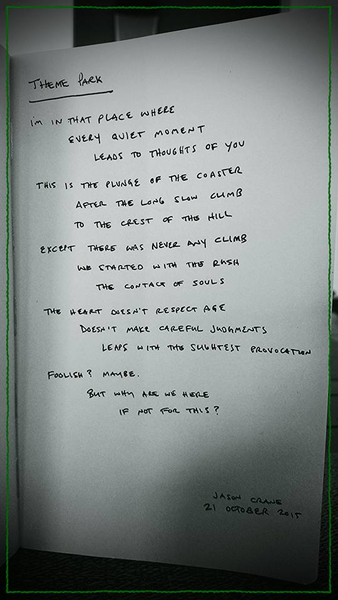 THEME PARK
I'M IN THAT PLACE WHERE
EVERY QUIET MOMENT
LEADS TO THOUGHTS OF YOU
THIS IS THE PLUNGE OF THE COASTER
AFTER THE LONG SLOW CLIMB
TO THE CREST OF THE HILL
EXCEPT THERE WAS NEVER ANY CLIMB
WE STARTED WITH THE RUSH
THE CONTACT OF SOULS
THE HEART DOESN'T RESPECT AGE
DOESN'T MAKE CAREFUL JUDGMENTS
LEAPS WITH THE SLIGHTEST PROVOCATION
FOOLISH? MAYBE.
BUT WHY ARE WE HERE
IF NOT FOR THIS?
JASON CRANE
21 OCTOBER 2015